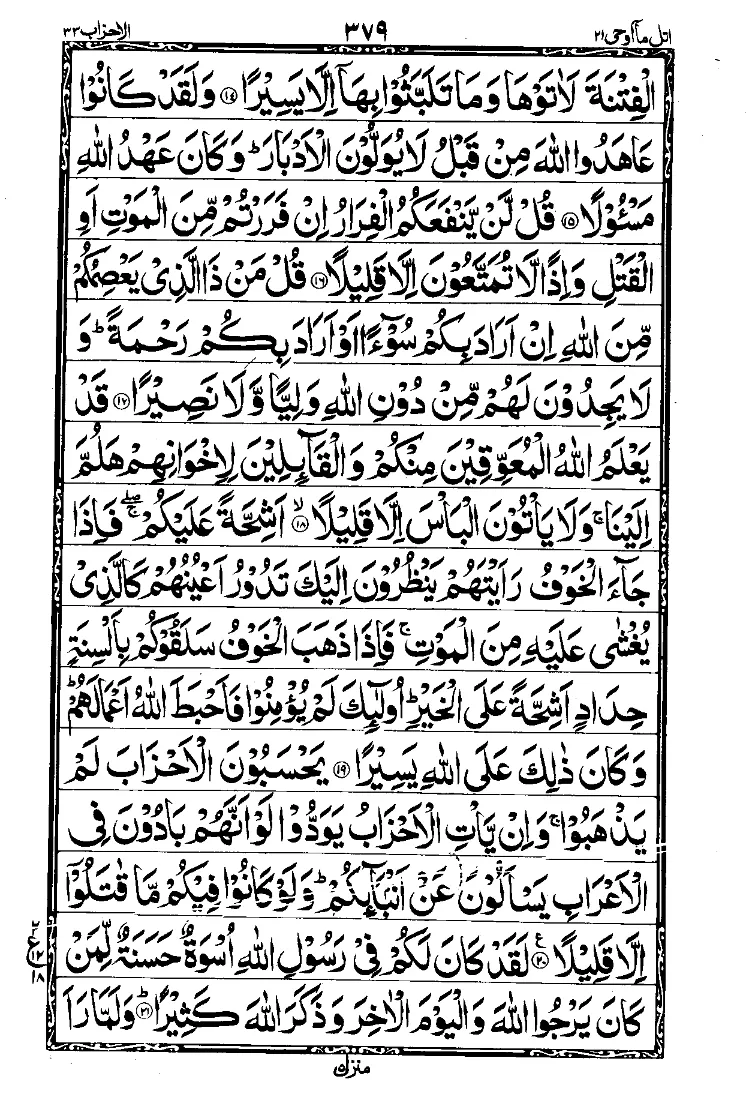 اتل ما اوحی ۲۱
۳۷۹
الاحزاب ۳۳
الْفِتْنَةَ لَاٰتَوْهَا وَمَا تَلَبَّثُوْا بِهَاۤ اِلَّا يَسِيْرًا ﴿۱۴﴾ وَلَقَدْ كَانُوْا
عَاهَدُوا اللّٰهَ مِنْ قَبْلُ لَا يُوَلُّوْنَ الْاَدْبَارَ ؕ وَكَانَ عَهْدُ اللّٰهِ
مَسْـُٔوْلًا ﴿۱۵﴾ قُلْ لَّنْ يَّنْفَعَكُمُ الْفِرَارُ اِنْ فَرَرْتُمْ مِّنَ الْمَوْتِ اَوِ
الْقَتْلِ وَاِذًا لَّا تُمَتَّعُوْنَ اِلَّا قَلِيْلًا ﴿۱۶﴾ قُلْ مَنْ ذَا الَّذِيْ يَعْصِمُكُمْ
مِّنَ اللّٰهِ اِنْ اَرَادَ بِكُمْ سُوْٓءًا اَوْ اَرَادَ بِكُمْ رَحْمَةً ؕ وَ
لَا يَجِدُوْنَ لَهُمْ مِّنْ دُوْنِ اللّٰهِ وَلِيًّا وَّلَا نَصِيْرًا ﴿۱۷﴾ قَدْ
يَعْلَمُ اللّٰهُ الْمُعَوِّقِيْنَ مِنْكُمْ وَالْقَآئِلِيْنَ لِاِخْوَانِهِمْ هَلُمَّ
اِلَيْنَا ۚ وَلَا يَاْتُوْنَ الْبَاْسَ اِلَّا قَلِيْلًا ﴿۱۸﴾ ۙ اَشِحَّةً عَلَيْكُمْ ۖۚ فَاِذَا
جَآءَ الْخَوْفُ رَاَيْتَهُمْ يَنْظُرُوْنَ اِلَيْكَ تَدُوْرُ اَعْيُنُهُمْ كَالَّذِيْ
يُغْشٰى عَلَيْهِ مِنَ الْمَوْتِ ۚ فَاِذَا ذَهَبَ الْخَوْفُ سَلَقُوْكُمْ بِاَلْسِنَةٍ
حِدَادٍ اَشِحَّةً عَلَى الْخَيْرِ ؕ اُولٰٓئِكَ لَمْ يُؤْمِنُوْا فَاَحْبَطَ اللّٰهُ اَعْمَالَهُمْ ؕ
وَكَانَ ذٰلِكَ عَلَى اللّٰهِ يَسِيْرًا ﴿۱۹﴾ يَحْسَبُوْنَ الْاَحْزَابَ لَمْ
يَذْهَبُوْا ۚ وَاِنْ يَّاْتِ الْاَحْزَابُ يَوَدُّوْا لَوْ اَنَّهُمْ بَادُوْنَ فِي
الْاَعْرَابِ يَسْاَلُوْنَ عَنْ اَنْۢبَآئِكُمْ ؕ وَلَوْ كَانُوْا فِيْكُمْ مَّا قٰتَلُوْۤا
اِلَّا قَلِيْلًا ﴿۲۰﴾ ع لَقَدْ كَانَ لَكُمْ فِيْ رَسُوْلِ اللّٰهِ اُسْوَةٌ حَسَنَةٌ لِّمَنْ
كَانَ يَرْجُوا اللّٰهَ وَالْيَوْمَ الْاٰخِرَ وَذَكَرَ اللّٰهَ كَثِيْرًا ﴿۲۱﴾ ؕ وَلَمَّا رَاَ
۲
ع
۱۲
۱۸